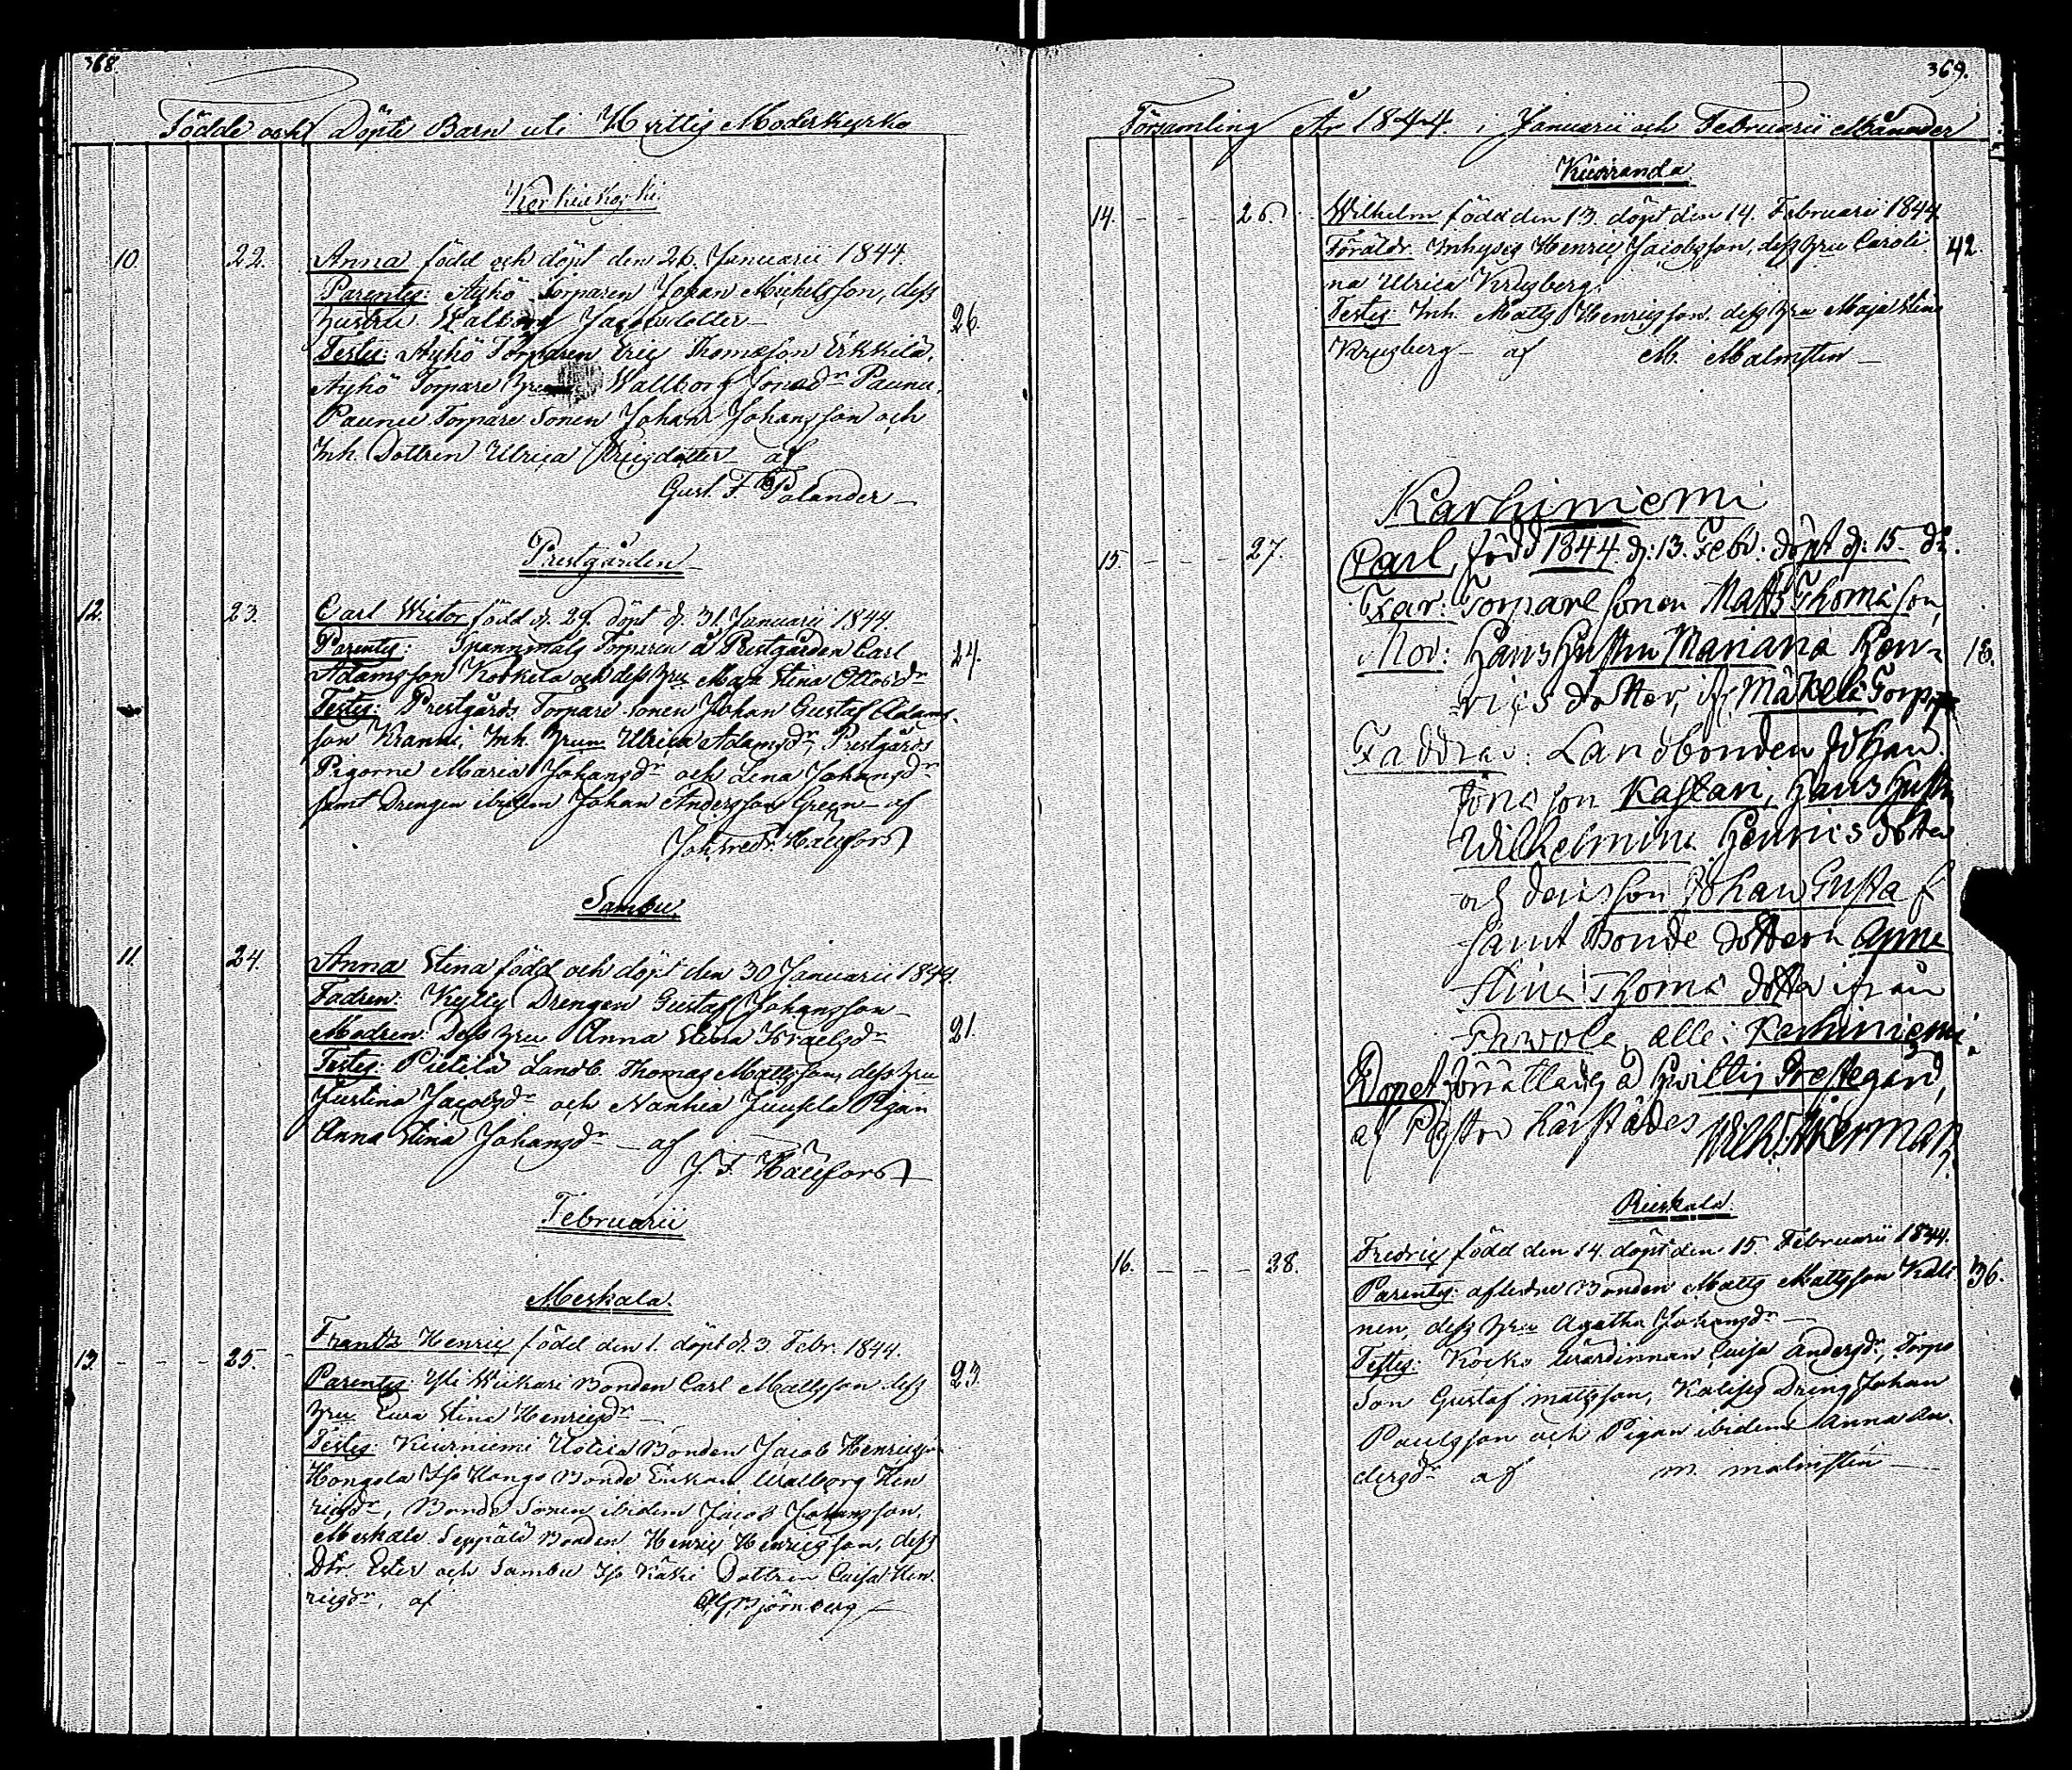 368.
Födde och Döpte Barn uti Hvittis Moderkyrko
Korkiakoski.
10. 22. Anna född och döpt den 26. Januarii 1844.
Parentes: Äyhö Torparen Johan Michelsson, dess
hustru Walborg Jacobsdotter 26.
Testes: Äyhö Torparen Eric Thomasson Erkkilä,
Äyhö Torpare Hru Wallborg Jonasdr Paunu,
Paunu Torpare Sonen Johan Johansson och
Inh. Dottren Ulrica Ericsdotter af
Gust. F. Polander
Prestgården
12. 23. Carl Victor född d. 29. döpt d. 31. Januarii 1844
Parentes: Spannmåls Torparen å Prestgården Carl 24.
Adamsson Koskela och dess hru Maja Stina Ottosdr
Testes: Prestgårds Torpare sonen Johan Gustaf Adams-
son Kranni, Inh. hrun Ulrica Adamsdr Prestgårds
Pigorne Maria Johansdr och Lena Johansdr
samt Drengen ibidem Johan Andersson Green af
Joh. Fredr. Hällfors
Sambu
11. 24. Anna Stina född och döpt den 30 Januarii 1844.
Fadren: Kylly Drengen Gustaf Johansson
Modren: Dess hru Anna Stina Israelsdr 21.
Testes: Pietilä Landb. Thomas Mattsson, dess hru
Justina Jacobsdr och Nanhia Juusela Pigan
Anna Stina Johansdr af
J. F. Hällfors
Februarii
Meskala.
13. 25. Frantz Henric född den 1. döpt d. 3. Febr. 1844.
Parentes: Yli Wickari Bonden Carl Mattsson dess 23.
hru Eva Stina Henricsdr
Testes: Kiurniemi Uotila Bonden Jacob Henricsson
Hongola Iso Hongo Bonde Enkan Walborg Hen
ricsdr, Bonde Sonen ibidem Jacob Johansson,
Meskala Seppälä Bonden Henric Henricsson, dess
Dtr. Ester och Sambu Iso Käski Dottren Caisa Hen-
ricsdr, af Björnberg
369.
Församling År 1844. i Januarii och Februarii Månader
Kiuranda
14. 26. Wilhelm född den 13. döpt den 14. Februarii 1844.
Föräldr. Inhyses Henric Jacobsson, dess hru Caroli 42
na Ulrica Krusberg.
Testes: Inh. Matts Henricsson dess hru Maja Stina
Krusberg af M. Malmsten
Karhiniemi
15. 27. Carl, född 1844. d. 13. Febr. döpt d. 15. d:o.
Far: Torpare sonen Matts Thomasson,
Mor: Hans Hustru Mariana Hen- 18.
rics dotter, ifr. Mäkelä Torp
Faddrar: Landbonden Johan
Jonasson Kastari, Hans Hustru
Wilhelmina Henrics dotter
och deras son Johan Gustaf
samt Bonde dottern Anna
Stina Thomas dotter ifrån
Pawola, alle i Karhiniemi.
Dopet förrättades å Hvittis Prestegård,
af Pastor härstädes Wilh. Åkerman
Rieskala
16. 28. Fredric född den 14. döpt den 15. Februarii 1844.
Parentes: aflidne Bonden Matts Mattsson Kali 36.
nen, dess hru Agatha Johansdr
Testes: Koko Wärdinnan Caisa Andersdr, Torpe
Son Gustaf Mattsson, Kalises Dreng Johan
Paulsson och Pigan ibidem Anna An-
dersdr af M. Malmsten